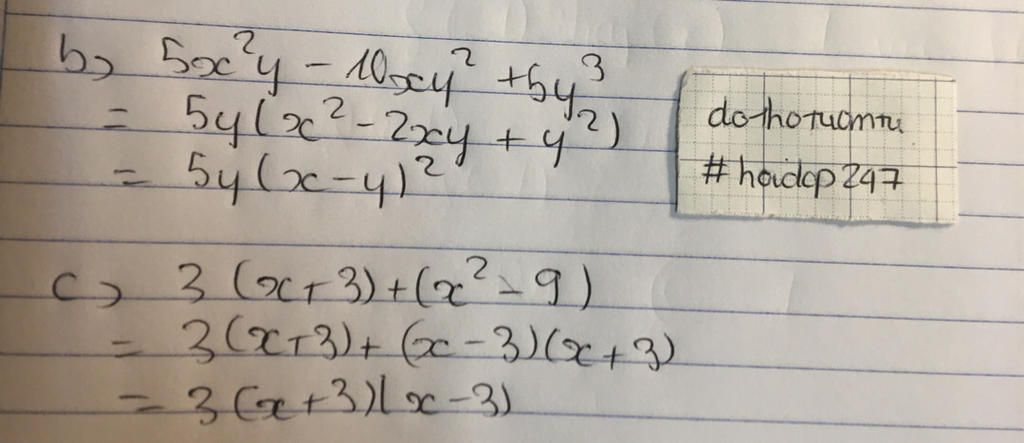 b) 5x²y - 10xy² + 5y³
= 5y(x² - 2xy + y²)
= 5y(x-y)²
dothotuantu
#hoidap247
c) 3 (x+3)+(x² - 9)
= 3(x+3)+ (x-3)(x+3)
= 3(x+3)(x-3)